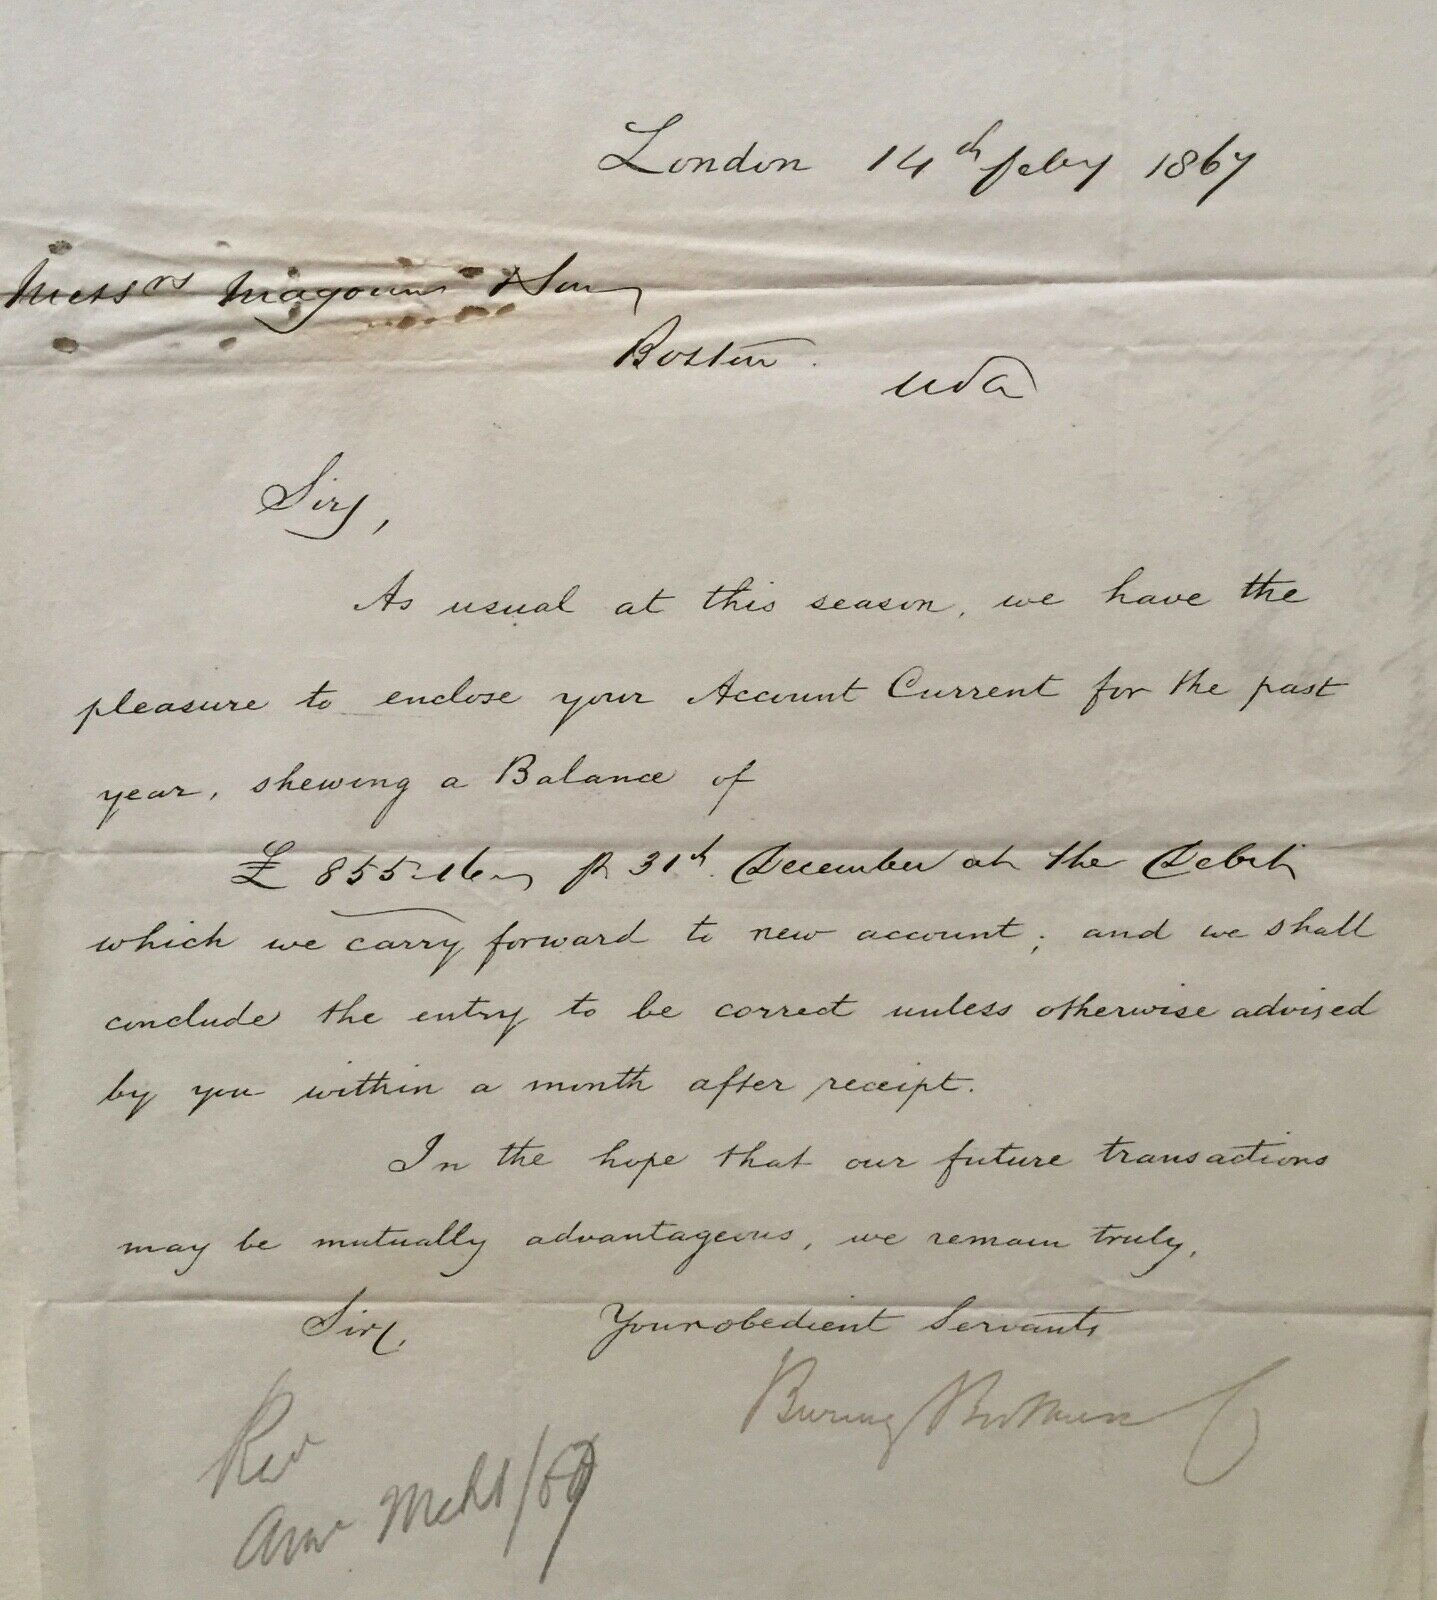 London 14th feby 1867
Messrs Magoun & Son
Boston.
USA
Sirs,
As usual at this season, we have the
pleasure to enclose your Account Current for the past
year, shewing a Balance of
£ 855.16 31st. December at the Debit
which we carry forward to new account; and we shall
conclude the entry to be correct unless otherwise advised
by you within a month after receipt.
In the hope that our future transactions
may be mutually advantageous, we remain truly,
Sirs, Your obedient Servants
Baring Brothers Co
Recd